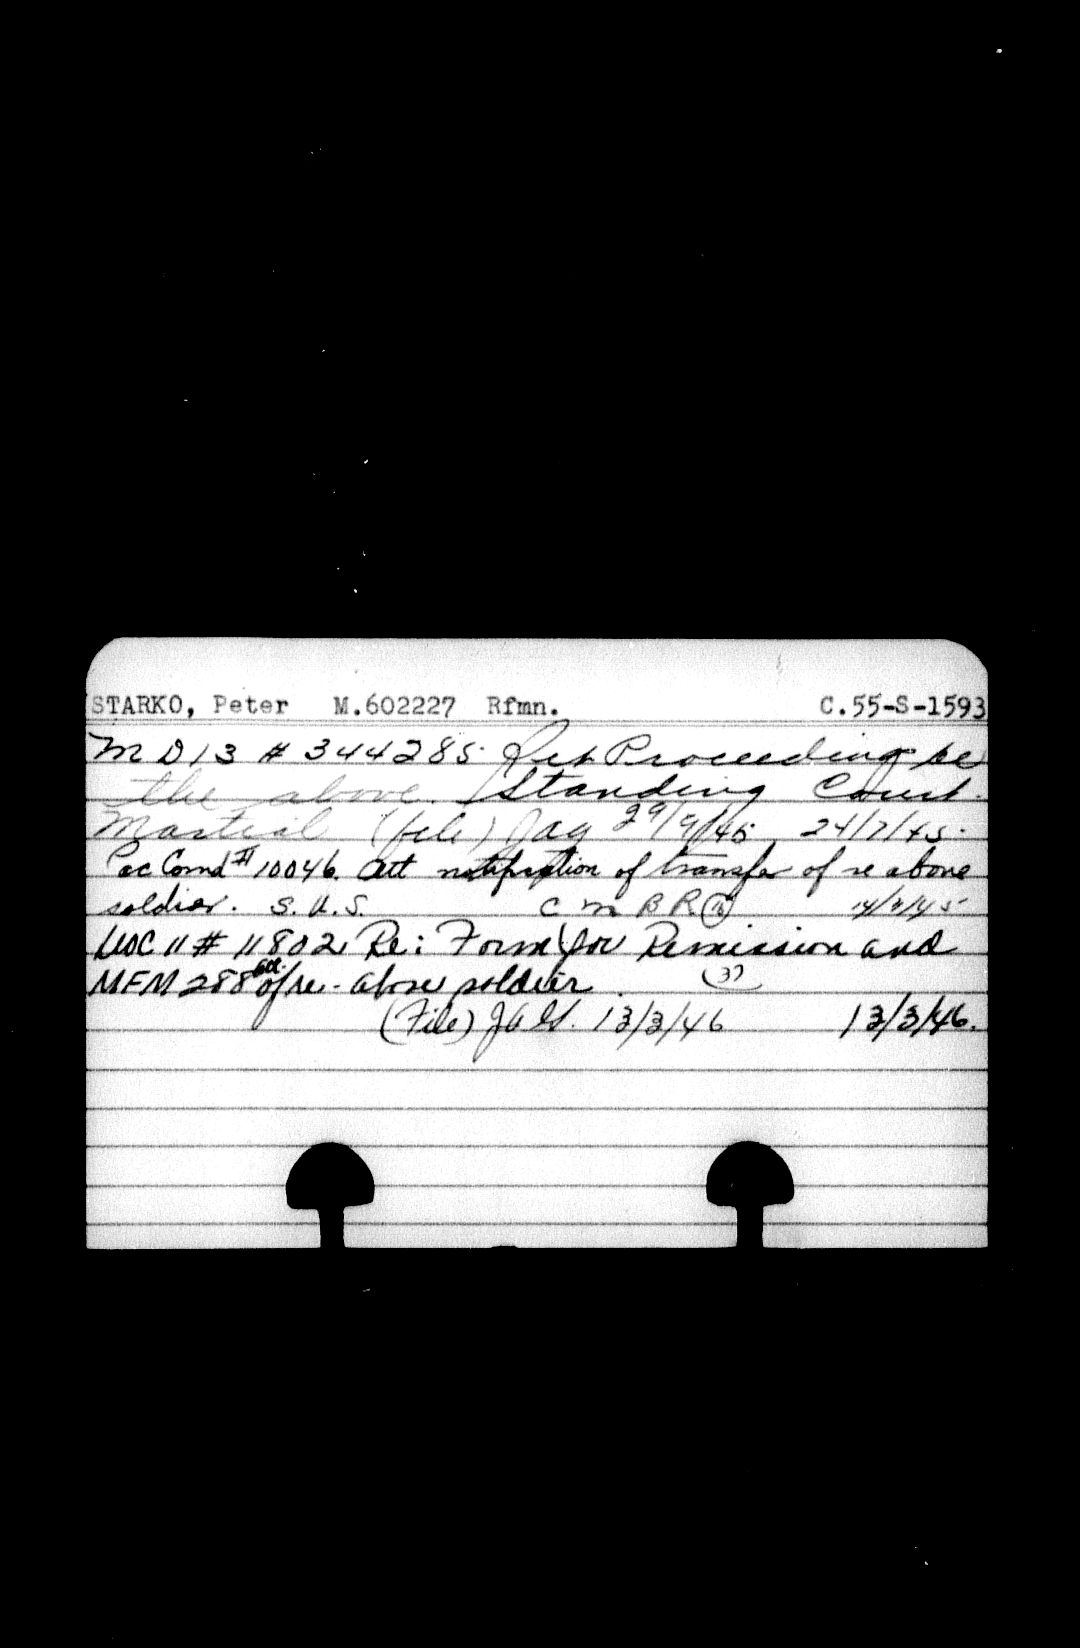 STARKO, Peter M.602227 Rfmn. C.55-S-1593
M D 13 # 344285 Proceeding re
the above. Standing Court
Martial (file) Jag 29/9/45 24/7/45.
Pac Comd # 10046. Att notification of transfer of re above
soldier. S.U.S. C M B R (16)
# 11802 Re: Form for Remission and
MFM 288 att. of re- above soldier. (37)
(File) JAG. 13/3/46 13/3/46.